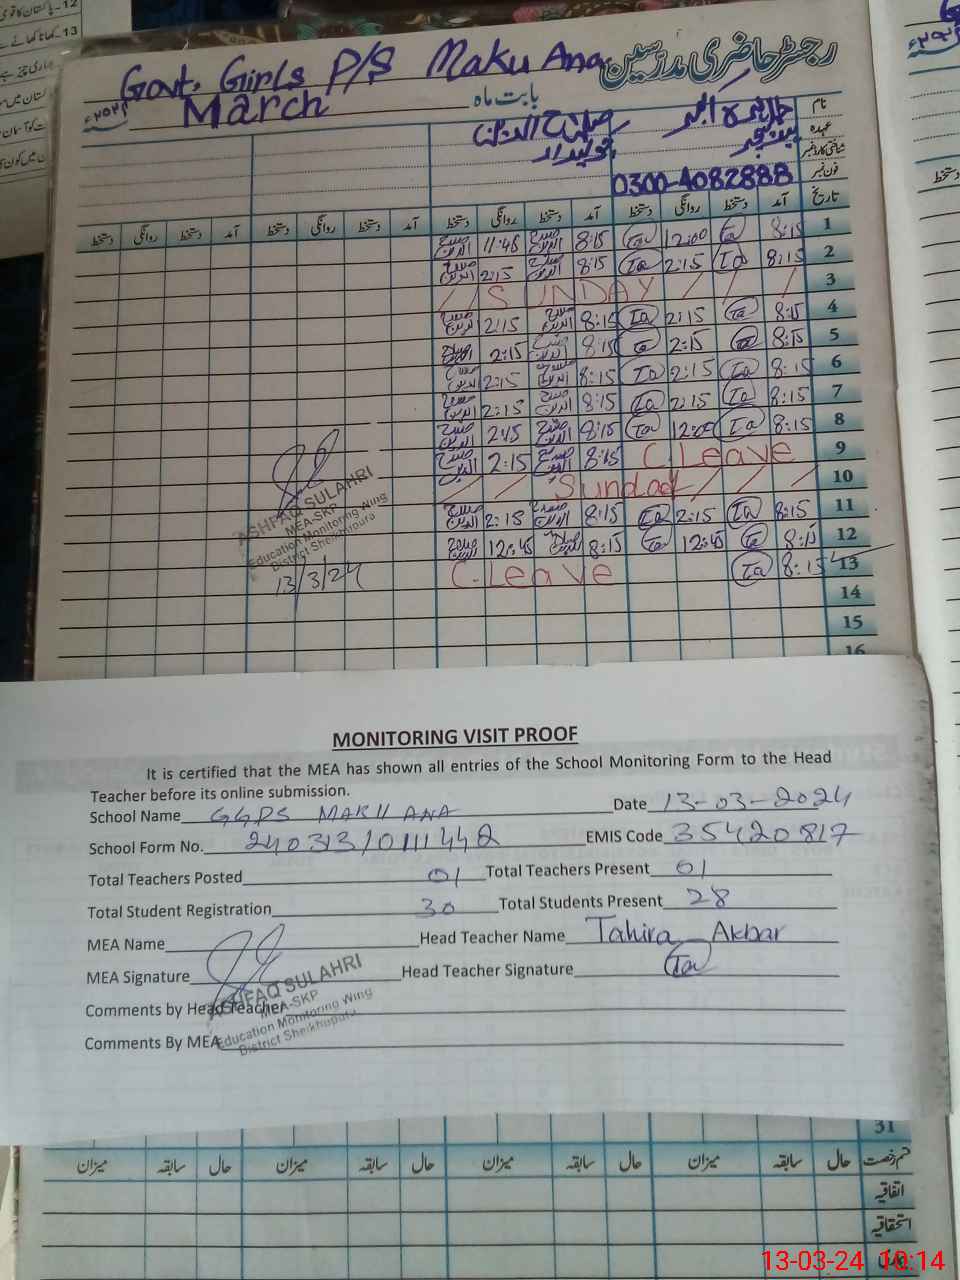 Govt. Girls P/S Maku Ana
رجسٹر حاضری مدرسین
March
بابت ماہ
نام
عہدہ
شناختی کارڈ نمبر
فون نمبر 0300-4082888
تاریخ آمد دستخط روانگی دستخط آمد دستخط روانگی دستخط آمد دستخط روانگی دستخط آمد دستخط روانگی دستخط
1 8:15 Ta 12:00 Ta 8:15 11:45
2 8:15 Ta 2:15 Ta 8:15 2:15
3 / / SUNDAY / / /
4 8:15 Ta 2:15 Ta 8:15 2:15
5 8:15 Ta 2:15 Ta 8:15 2:15
6 8:15 Ta 2:15 Ta 8:15 2:15
7 8:15 Ta 2:15 Ta 8:15 2:15
8 8:15 Ta 12:00 Ta 8:15
9 C.Leave 8:15 2:15
10 / / Sunday / / /
11 8:15 Ta 2:15 Ta 8:15 2:15
12 8:15 Ta 12:45 Ta 8:15 12:45
13 8:15 Ta C.Leave
14
15
16
ASHFAQ SULAHRI
MEA-SKP
Education Monitoring Wing
District Sheikhupura
13/3/24
MONITORING VISIT PROOF
It is certified that the MEA has shown all entries of the School Monitoring Form to the Head
Teacher before its online submission.
School Name GGPS MAKU ANA Date 13-03-2024
School Form No. 240313/0111442 EMIS Code 35420817
Total Teachers Posted 01 Total Teachers Present 01
Total Student Registration 30 Total Students Present 28
MEA Name Head Teacher Name Tahira Akbar
MEA Signature Head Teacher Signature Ta
ASHFAQ SULAHRI
MEA-SKP
Education Monitoring Wing
District Sheikhupura
Comments by Head Teacher
Comments By MEA
31
قسم رخصت حال سابقہ میزان حال سابقہ میزان حال سابقہ میزان حال سابقہ میزان
اتفاقیہ
استحقاقیہ
13-03-24 10:14